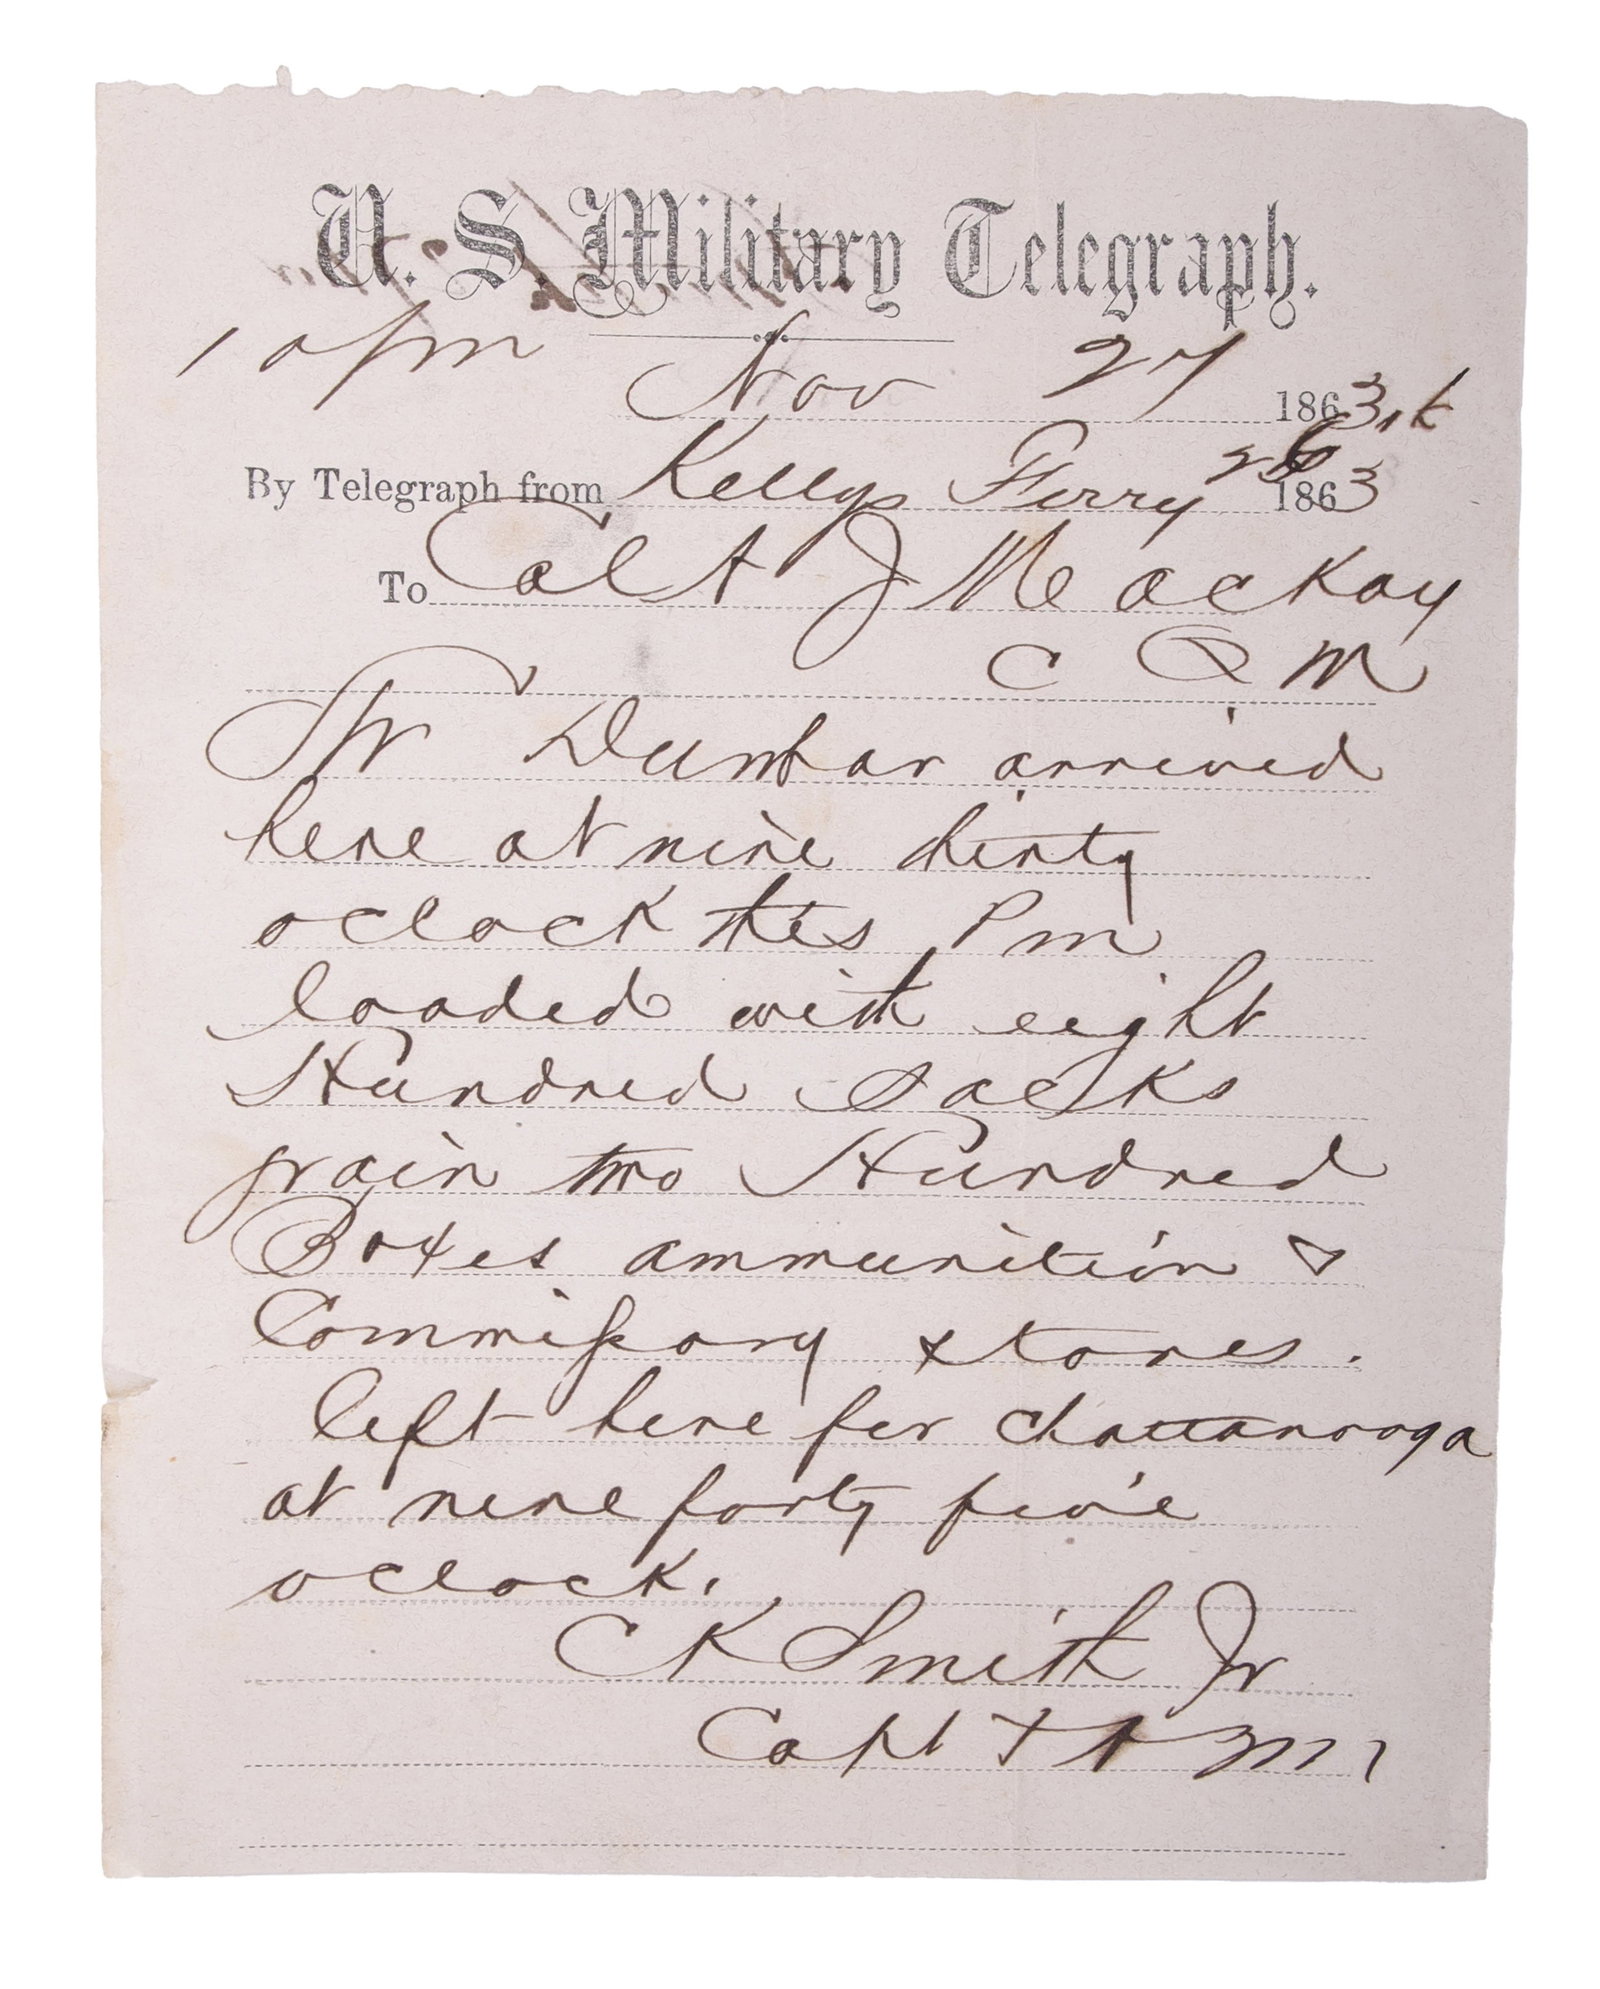 U. S. Military Telegraph.
10 pm
Nov 27 1863
By Telegraph from Kellys Ferry 26 1863
To Col A J Mc ackay
C Q M
Str Dunbar arrived
here at nine thirty
oclock this Pm
loaded with eight
Hundred Sacks
grain two Hundred
Boxes ammunition &
Commissary stores.
left here for Chattanooga
at nine forty five
oclock.
CK Smith Jr
Capt & AQM